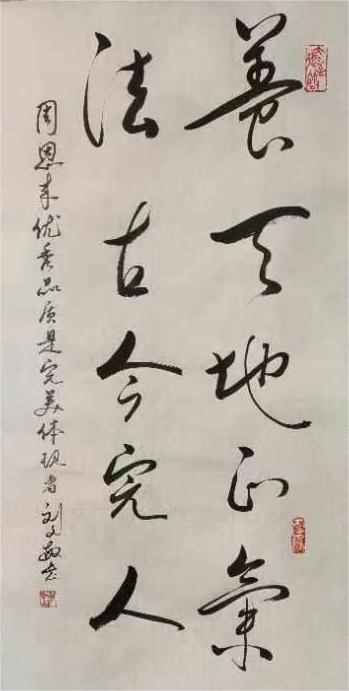 養天地正氣
法古今完人
周恩来优秀品质是完美体现者 刘文敏书